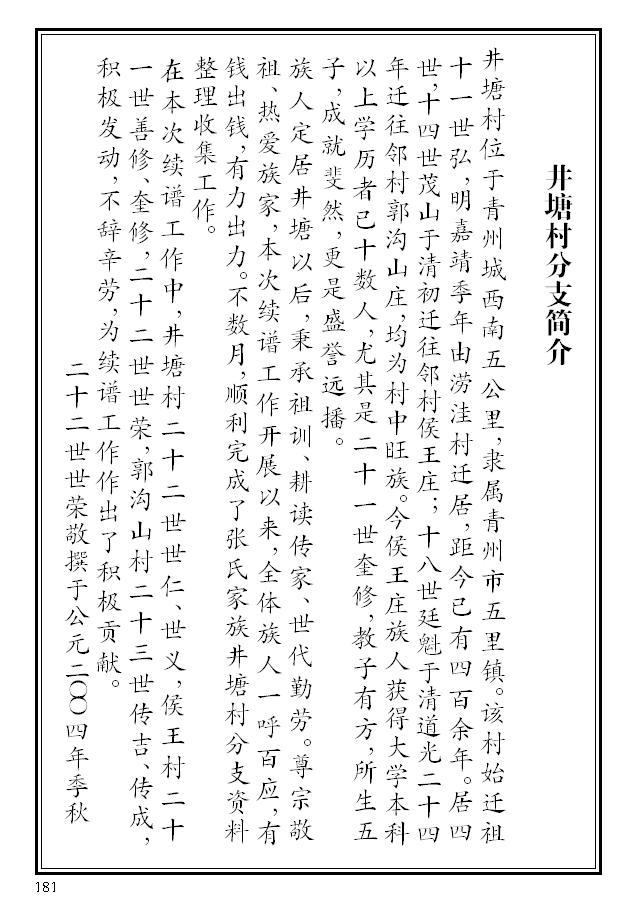 井塘村分支简介
井塘村位于青州城西南五公里，隶属青州市五里镇。该村始迁祖
十一世弘，明嘉靖季年由涝洼村迁居，距今已有四百余年。居四
世，十四世茂山于清初迁往邻村侯王庄；十八世廷魁于清道光二十四
年迁往邻村郭沟山庄，均为村中旺族。今侯王庄族人获得大学本科
以上学历者已十数人，尤其是二十一世奎修，教子有方，所生五
子，成就斐然，更是盛誉远播。
族人定居井塘以后，秉承祖训、耕读传家、世代勤劳。尊宗敬
祖、热爱族家，本次续谱工作开展以来，全体族人一呼百应，有
钱出钱，有力出力。不数月，顺利完成了张氏家族井塘村分支资料
整理收集工作。
在本次续谱工作中，井塘村二十二世世仁、世义，侯王村二十
一世善修、奎修，二十二世世荣，郭沟山村二十三世传吉、传成，
积极发动，不辞辛劳，为续谱工作作出了积极贡献。
二十二世世荣敬撰于公元二〇〇四年季秋
181